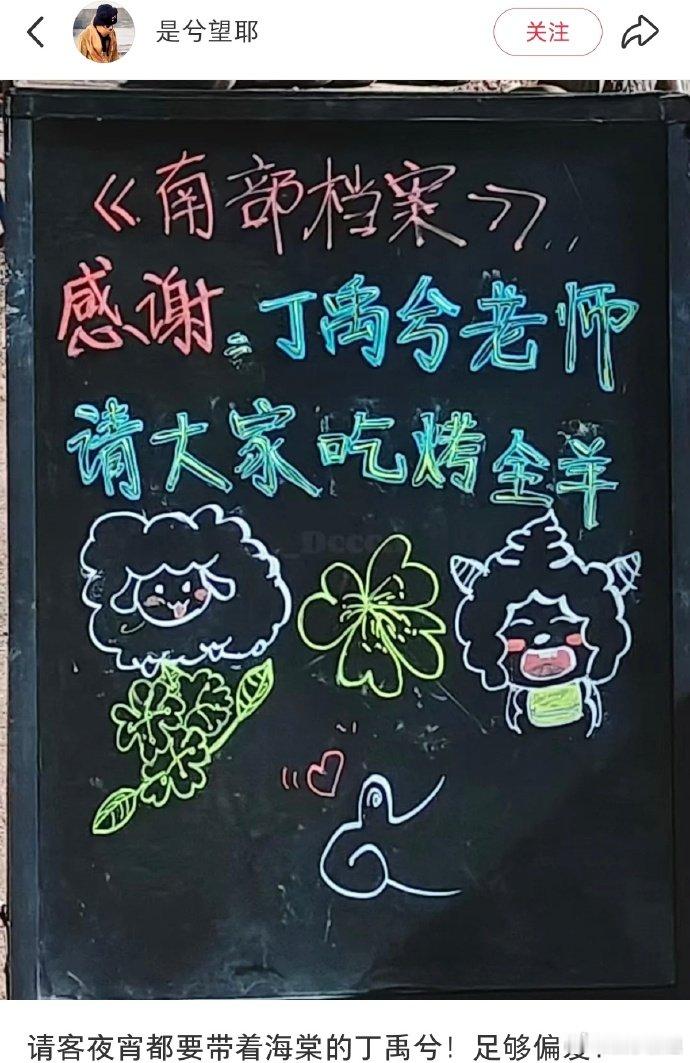 是兮望耶
关注
《南部档案》...
感谢：丁禹兮老师
请大家吃烤全羊
请客夜宵都要带着海棠的丁禹兮！足够偏爱！